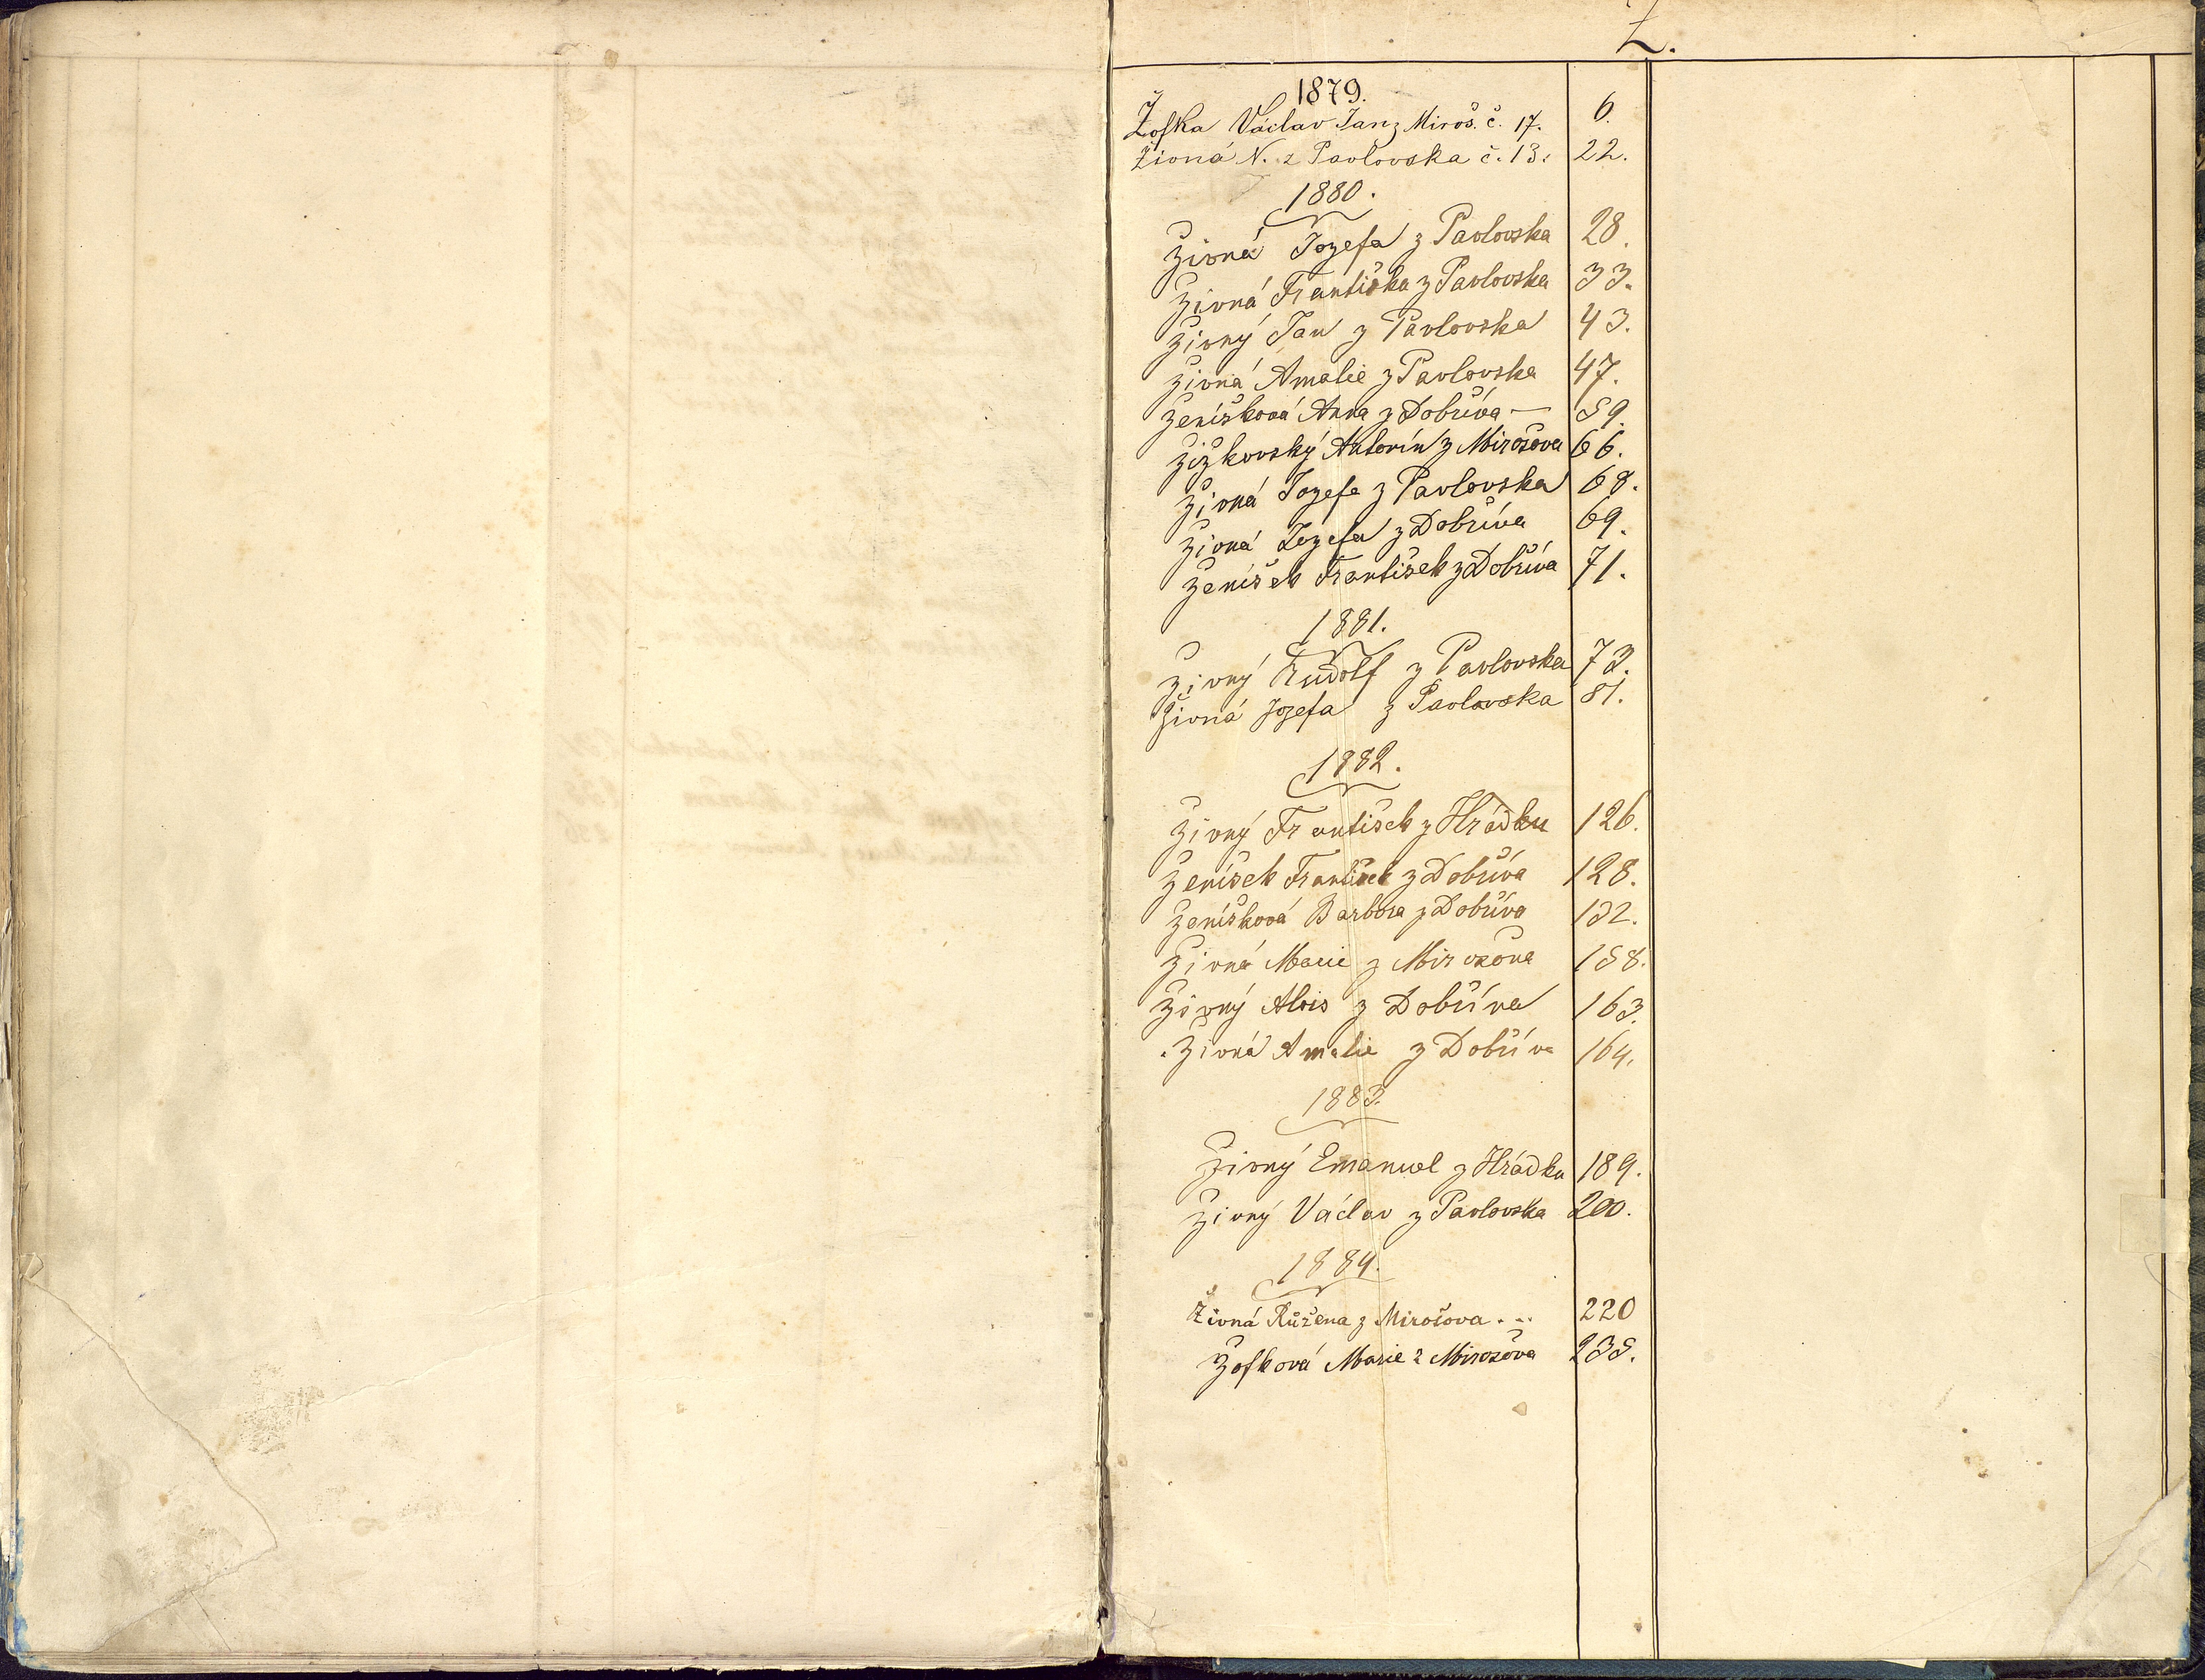 Ž.
1879.
Žofka Václav Jan z Miroš. č. 17. 6.
Živná N. z Pavlovska č. 13. 22.
1880.
Živná Jozefa z Pavlovska 28.
Živná Františka z Pavlovska 33.
Živný Jan z Pavlovska 43.
Živná Amalie z Pavlovska 47.
Ženíšková Anna z Dobříva — 59.
Žižkovský Antonín z Mirošova 66.
Živná Jozefa z Pavlovska 68.
Živná Jozefa z Dobříva 69.
Ženíšek František z Dobříva 71.
1881.
Živný Rudolf z Pavlovska 73.
Živná Jozefa z Pavlovska 81.
1882.
Živný František z Hrádku 126.
Ženíšek František z Dobříva 128.
Ženíšková Barbora z Dobříva 132.
Živná Marie z Mirošova 158.
Živný Alois z Dobříva 163.
Živná Amalie z Dobříva 164.
1883.
Živný Emanuel z Hrádku 189.
Živný Václav z Pavlovska 200.
1884.
Živná Růžena z Mirošova . .. 220
Žofková Marie z Mirošova 235.